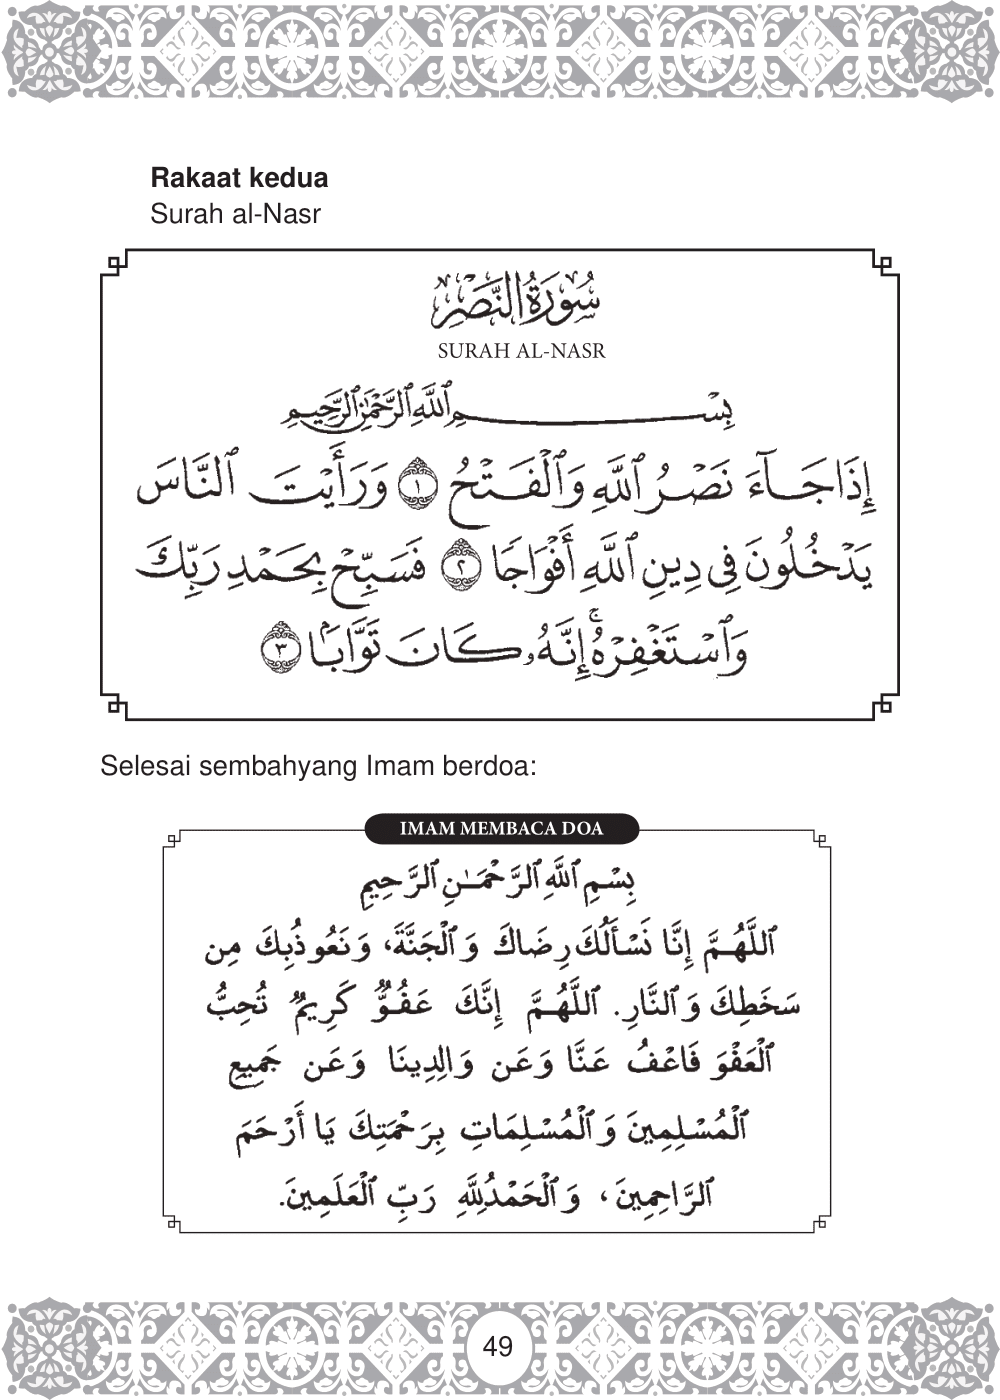 Rakaat kedua
Surah al-Nasr
سُورَةُ النَّصْرِ
SURAH AL-NASR
بِسْمِ ٱللَّهِ ٱلرَّحْمَٰنِ ٱلرَّحِيمِ
إِذَا جَآءَ نَصْرُ ٱللَّهِ وَٱلْفَتْحُ ١ وَرَأَيْتَ ٱلنَّاسَ
يَدْخُلُونَ فِى دِينِ ٱللَّهِ أَفْوَاجًا ٢ فَسَبِّحْ بِحَمْدِ رَبِّكَ
وَٱسْتَغْفِرْهُ ۚ إِنَّهُۥ كَانَ تَوَّابًۢا ٣
Selesai sembahyang Imam berdoa:
IMAM MEMBACA DOA
بِسْمِ ٱللَّهِ ٱلرَّحْمَـٰنِ ٱلرَّحِيمِ
ٱللَّهُمَّ إِنَّا نَسْأَلُكَ رِضَاكَ وَٱلْجَنَّةَ، وَنَعُوذُبِكَ مِن
سَخَطِكَ وَٱلنَّارِ. ٱللَّهُمَّ إِنَّكَ عَفُوٌّ كَرِيمٌ تُحِبُّ
ٱلْعَفْوَ فَاعْفُ عَنَّا وَعَن وَالِدِينَا وَعَن جَمِيعِ
ٱلْمُسْلِمِينَ وَٱلْمُسْلِمَاتِ بِرَحْمَتِكَ يَا أَرْحَمَ
ٱلرَّاحِمِينَ، وَٱلْحَمْدُلِلَّهِ رَبِّ ٱلْعَلَمِينَ.
49